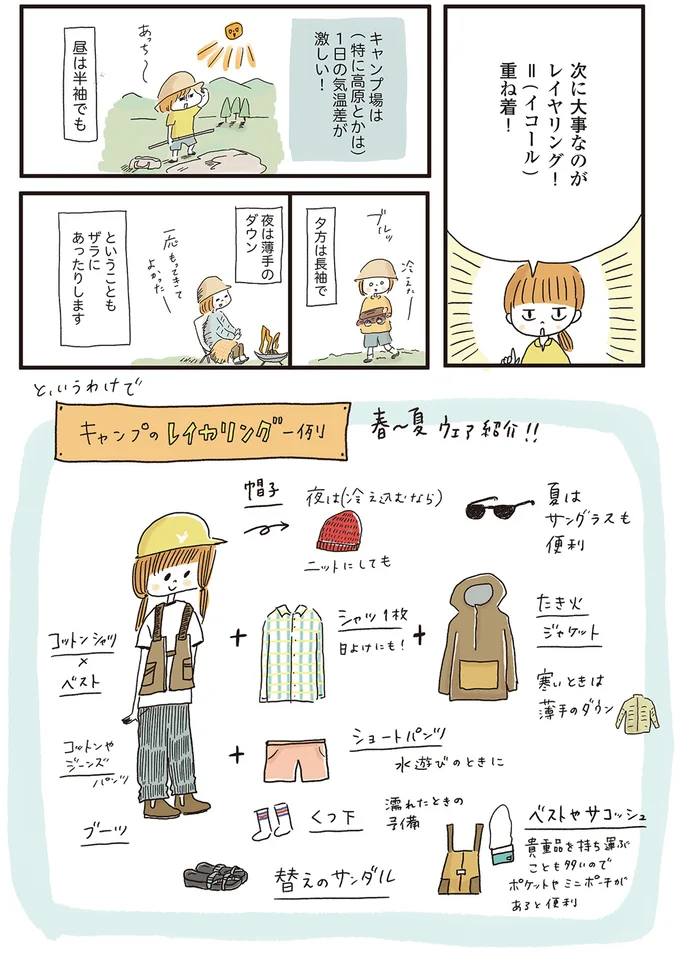 次に大事なのが
レイヤリング!
=(イコール)
重ね着!
キャンプ場は
(特に高原とかは)
1日の気温差が
激しい!
あっち〜
昼は半袖でも
夕方は長袖で
ブルッ
冷えた〜
夜は薄手の
ダウン
一応もってきて
よかった〜
ということも
ザラに
あったりします
というわけで
キャンプのレイヤリング一例
春〜夏 ウェア紹介!!
帽子
夜は(冷え込むなら)
ニットにしても
夏は
サングラスも
便利
コットンシャツ
×
ベスト
+
シャツ1枚
日よけにも!
+
たき火
ジャケット
寒いときは
薄手のダウン
コットンや
ジーンズ
パンツ
+
ショートパンツ
水遊びのときに
ブーツ
くつ下
濡れたときの
予備
替えのサンダル
ベストやサコッシュ
貴重品を持ち運ぶ
ことも多いので
ポケットやミニポーチが
あると便利